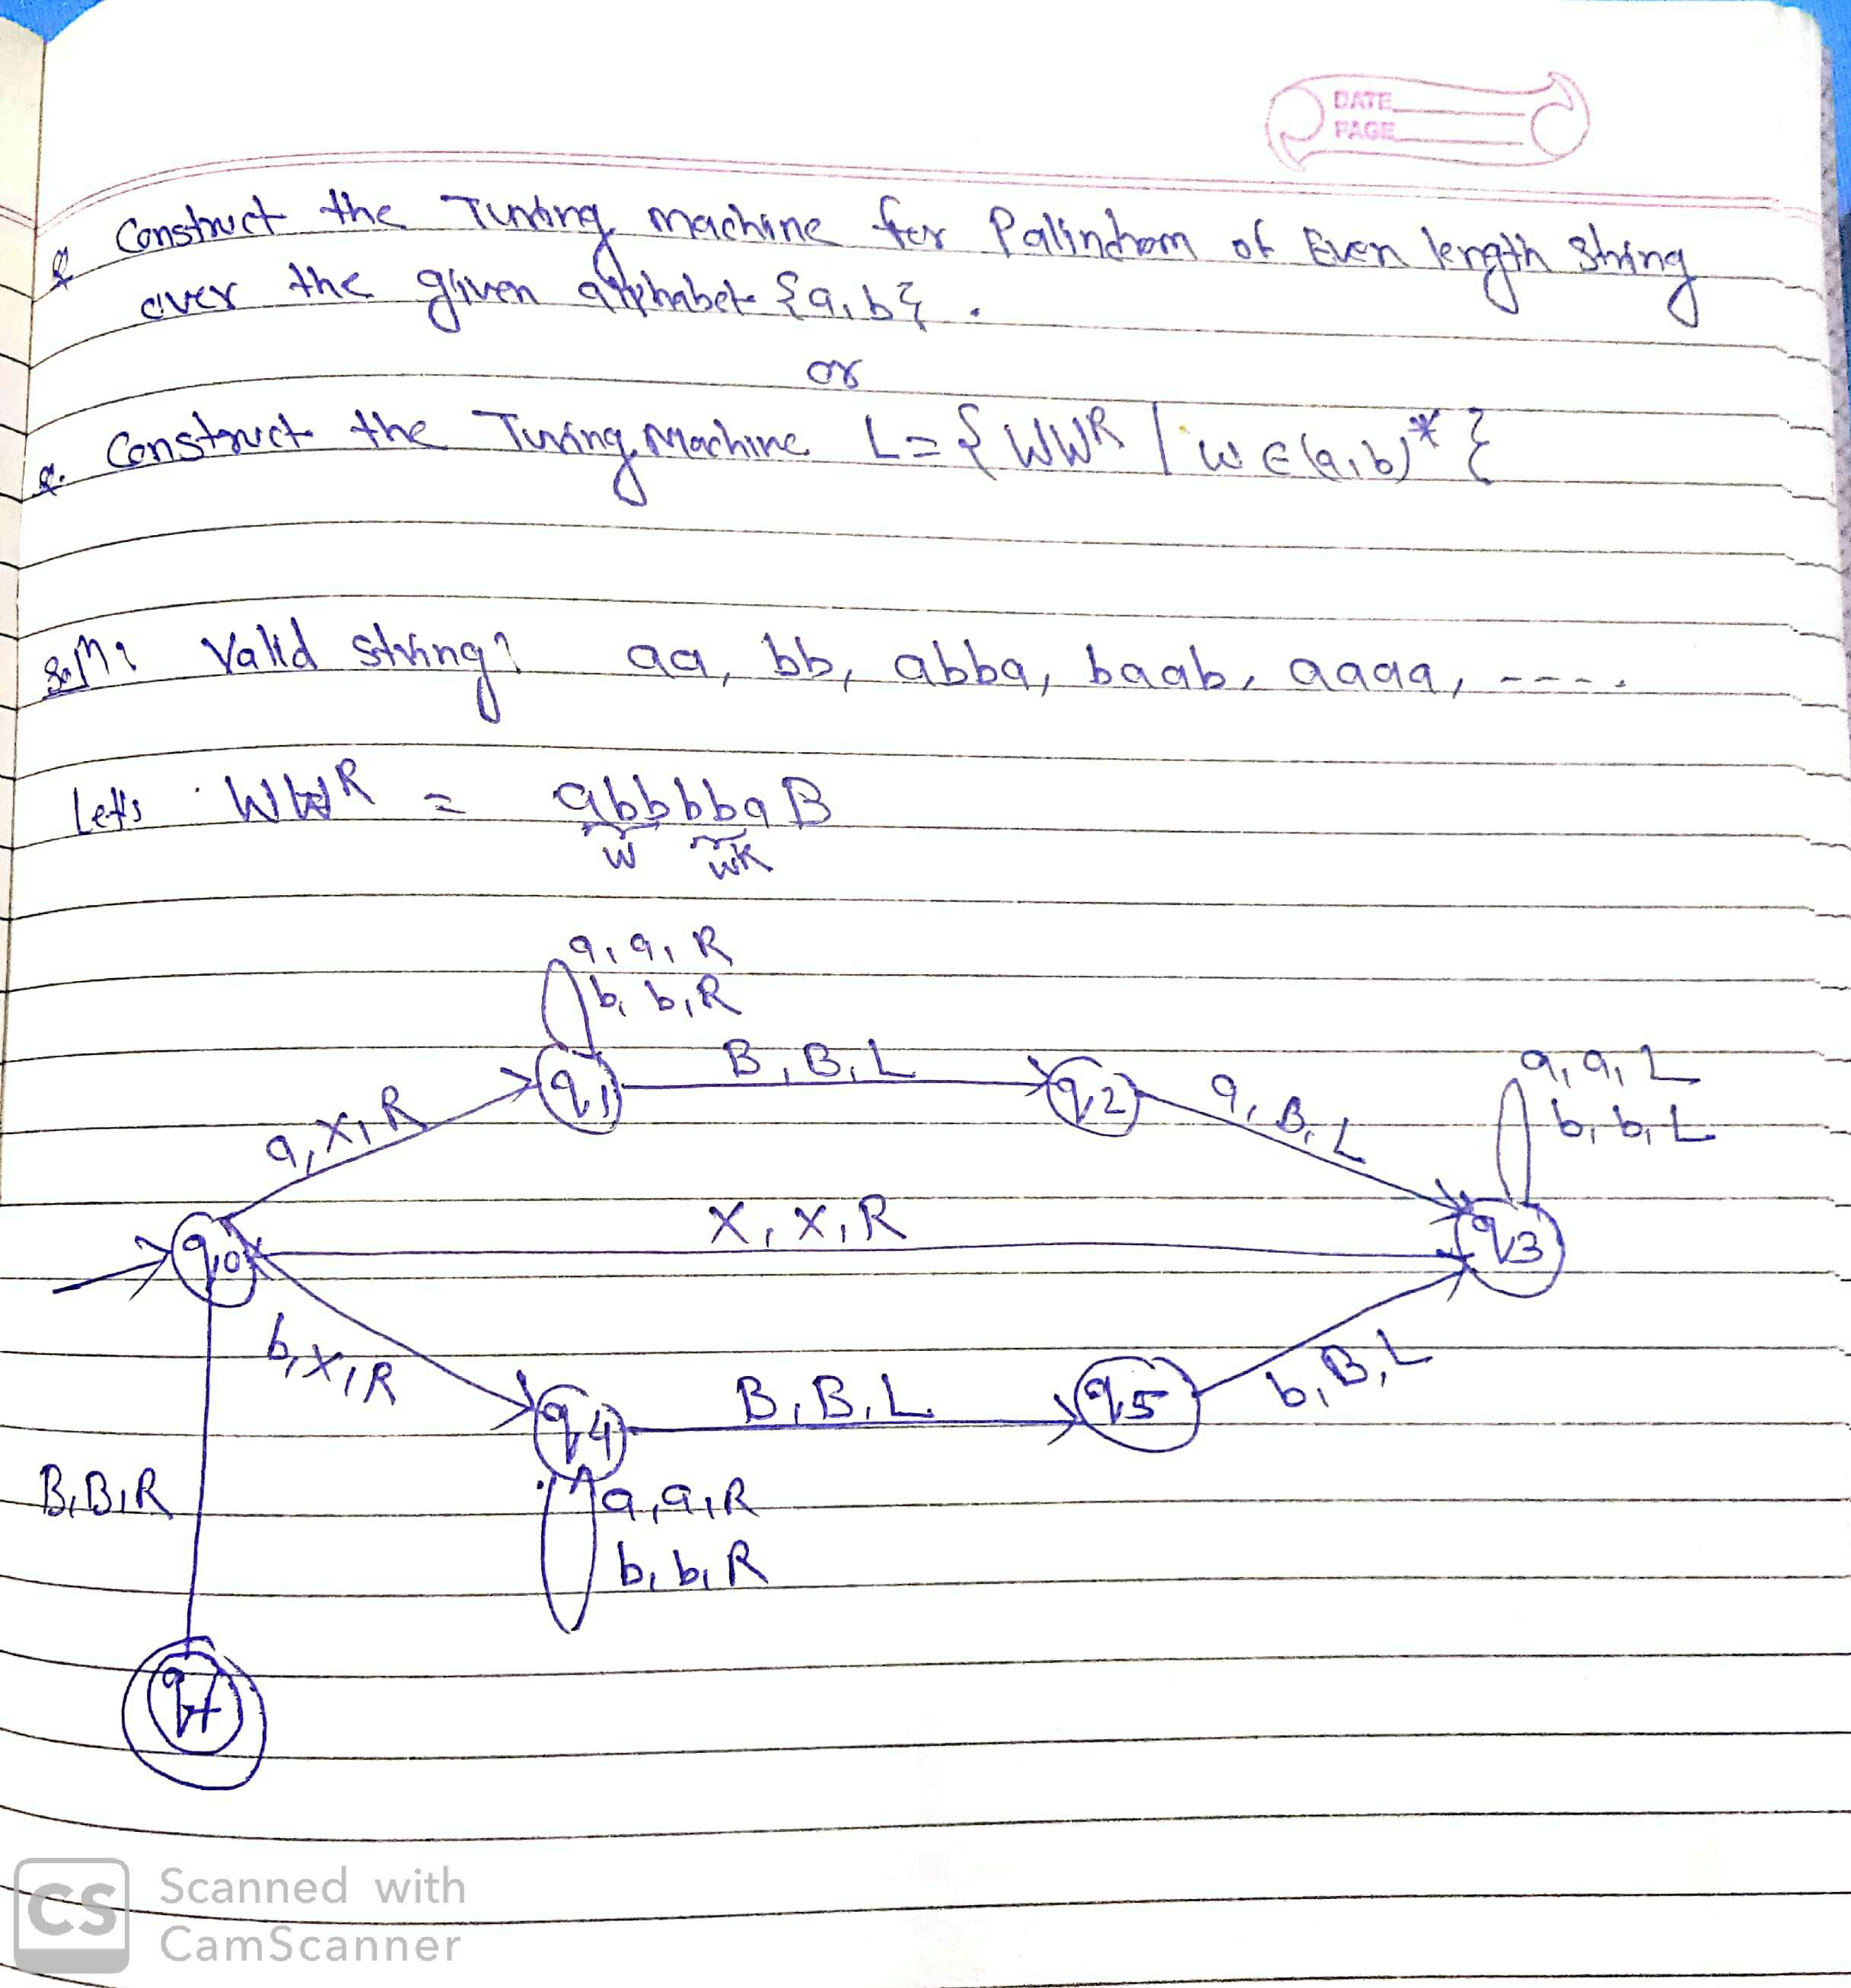 DATE
PAGE
Q Construct the Turing machine for Palindrom of Even length string
over the given alphabet {a,b}.
or
Q. Construct the Turing Machine L = { WWR | w ∈ (a,b)* }
Soln: Valid string: aa, bb, abba, baab, aaaa, ----.
Let's WWR = abbbbaB
W WR
a,a,R
b,b,R
B,B,L
a,a,L
b,b,L
q1
q2
a,B,L
a,X,R
X,X,R
q0
q3
b,X,R
b,B,L
B,B,L
q5
q4
B,B,R
a,a,R
b,b,R
qf
CS Scanned with
CamScanner